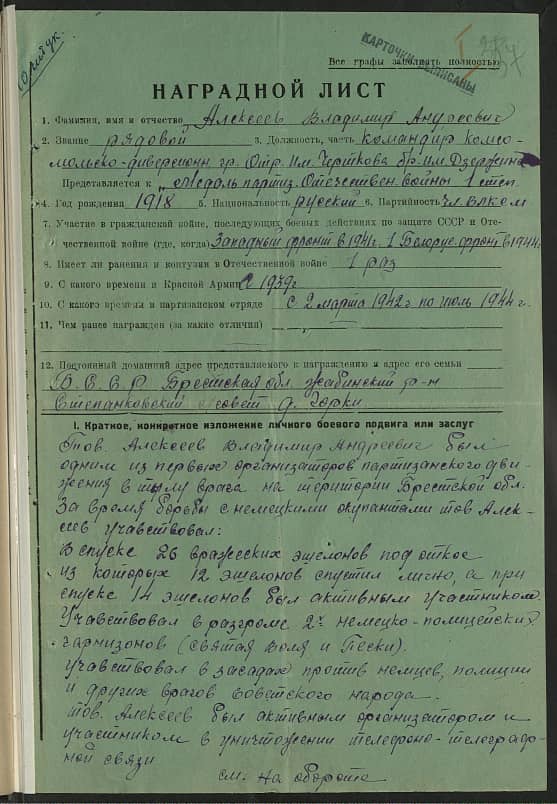 КАРТОЧКИ
Все графы заполнять полностью
НАГРАДНОЙ ЛИСТ
1. Фамилия, имя и отчество Алексеев Владимир Андреевич
2. Звание рядовой 3. Должность, часть командир комсо-
мольско-диверсионн гр. Отр. им. Черткова бр. им. Дзержинс
Представляется к „Медаль партиз. Отечествен. войны 1 степ
4. Год рождения 1918 5. Национальность русский 6. Партийность чл. ВЛКСМ
7. Участие в гражданской войне, последующих боевых действиях по защите СССР и Оте-
чественной войне (где, когда) Западный фронт в 1941г. 1 Белорус. фронт в 1944г
8. Имеет ли ранения и контузии в Отечественной войне 1 раз
9. С какого времени в Красной Армии с 1939г
10. С какого времени в партизанском отряде с 2 марта 1942г по июль 1944г.
11. Чем ранее награжден (за какие отличия)
12. Постоянный домашний адрес представляемого к награждению и адрес его семьи
Б.С.С.Р Брестская обл. Жабинский р-н
Степанковский с/совет д. Горки
I. Краткое, конкретное изложение личного боевого подвига или заслуг
Тов. Алексеев Владимир Андреевич был
одним из первых организаторов партизанского дви-
жения в тылу врага на територии Брестской обл.
За время борьбы с немецкими окупантами тов Алек-
сеев учавствовал:
В спуске 26 вражеских эшелонов под откос
из которых 12 эшелонов спустил лично, а при
спуске 14 эшелонов был активным участником.
Учавствовал в разгроме 2х немецко-полицейских
гарнизонов (святая воля и Пески).
Учавствовал в засадах против немцев, полиции
и других врагов Советского народа.
Тов. Алексеев был активным организатором и
участником в уничтожении телефоно-телеграф-
ной связи
см. на обороте